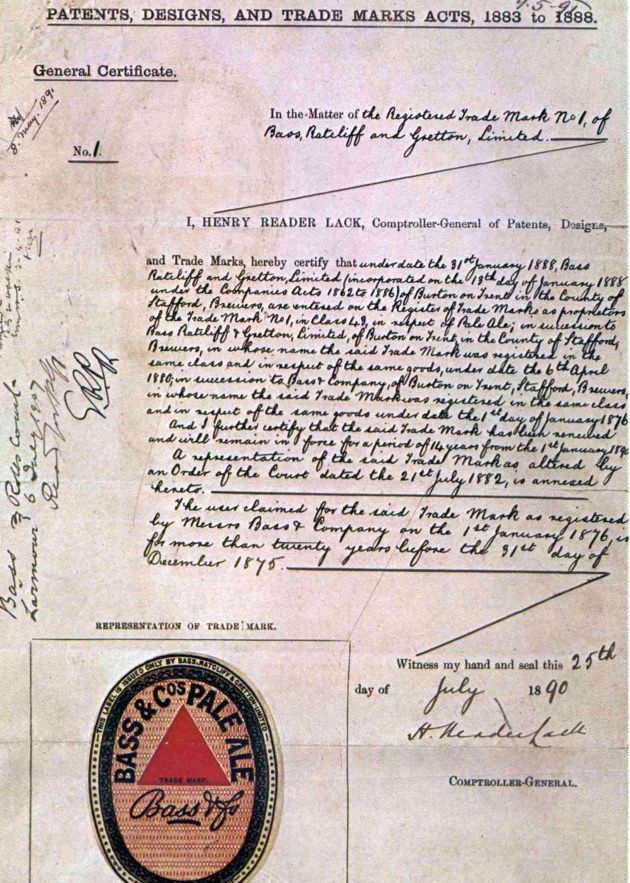 9.5.91
PATENTS, DESIGNS, AND TRADE MARKS ACTS, 1883 to 1888.
General Certificate.
8. May. 1891
In the Matter of the Registered Trade Mark No 1, of
Bass, Ratcliff and Gretton, Limited.
No. 1.
I, HENRY READER LACK, Comptroller-General of Patents, Designs,
and Trade Marks, hereby certify that under date the 31st January 1888, Bass
Ratcliff and Gretton, Limited (incorporated on the 13th day of January 1888
under the Companies Acts 1862 to 1886) of Burton on Trent in the County of
Stafford, Brewers, are entered on the Register of Trade Marks as proprietors
of the Trade Mark No 1, in Class 43, in respect of Pale Ale; in succession to
Bass Ratcliff & Gretton, Limited, of Burton on Trent, in the County of Stafford,
Brewers, in whose name the said Trade Mark was registered in the
same class and in respect of the same goods, under date the 6th April
1880; in succession to Bass & Company, of Burton on Trent, Stafford, Brewers,
in whose name the said Trade Mark was registered in the same class
and in respect of the same goods under date the 1st day of January 1876
And I further certify that the said Trade Mark has been renewed
and will remain in force for a period of 14 years from the 1st January 1890
A representation of the said Trade Mark as altered by
an Order of the Court dated the 21st July 1882, is annexed
hereto.
The user claimed for the said Trade Mark as registered
by Messrs Bass & Company on the 1st January 1876, is
for more than twenty years before the 31st day of
December 1875.
Bass
Larmour 6
1907
REPRESENTATION OF TRADE MARK.
THIS LABEL IS ISSUED ONLY BY BASS, RATCLIFF & GRETTON LIMITED
BASS & COS PALE ALE
TRADE MARK.
Bass & Co
Witness my hand and seal this 25th
day of July 1890
H. Reader Lack
COMPTROLLER-GENERAL.